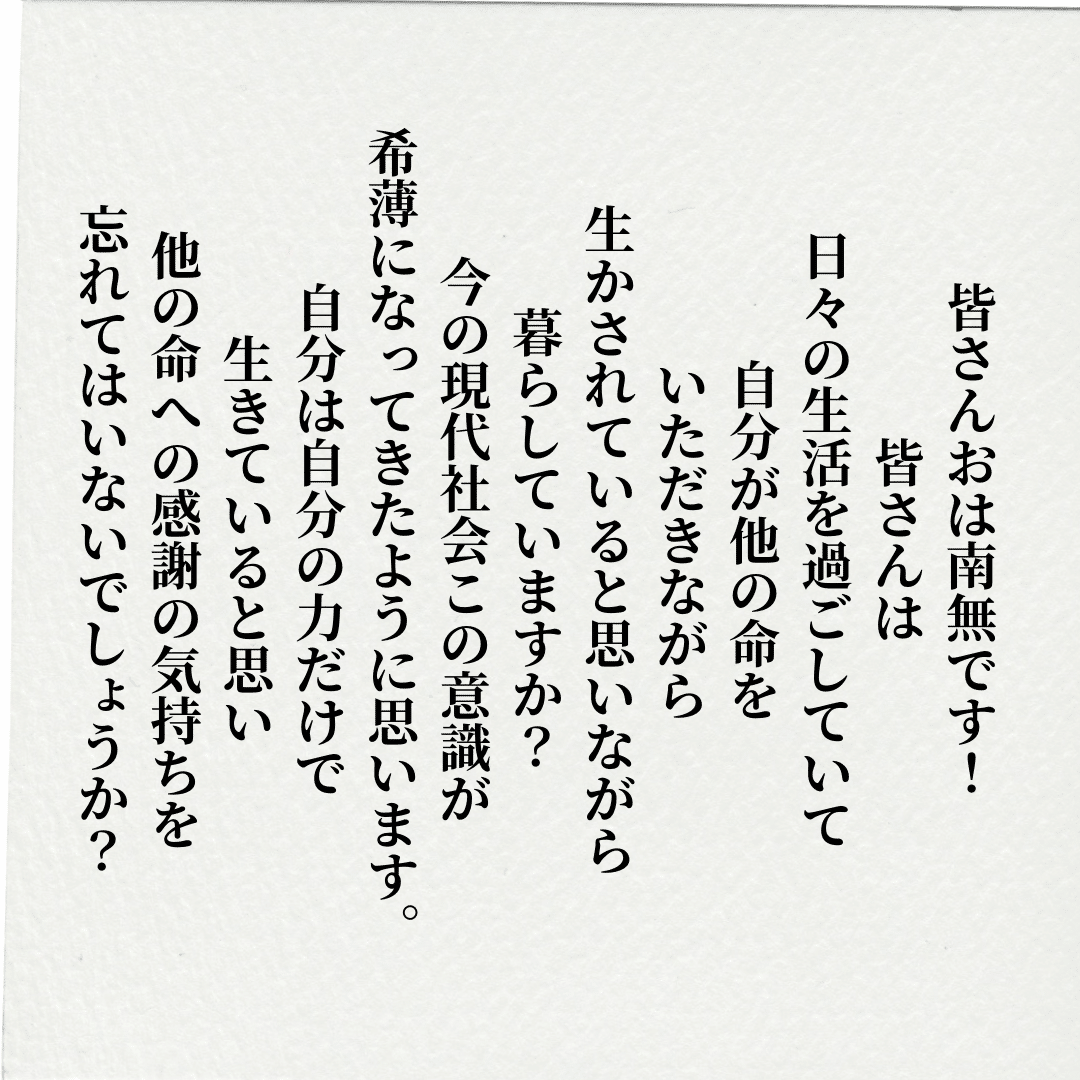 皆さんおは南無です！
皆さんは
日々の生活を過ごしていて
自分が他の命を
いただきながら
生かされていると思いながら
暮らしていますか？
今の現代社会この意識が
希薄になってきたように思います。
自分は自分の力だけで
生きていると思い
他の命への感謝の気持ちを
忘れてはいないでしょうか？